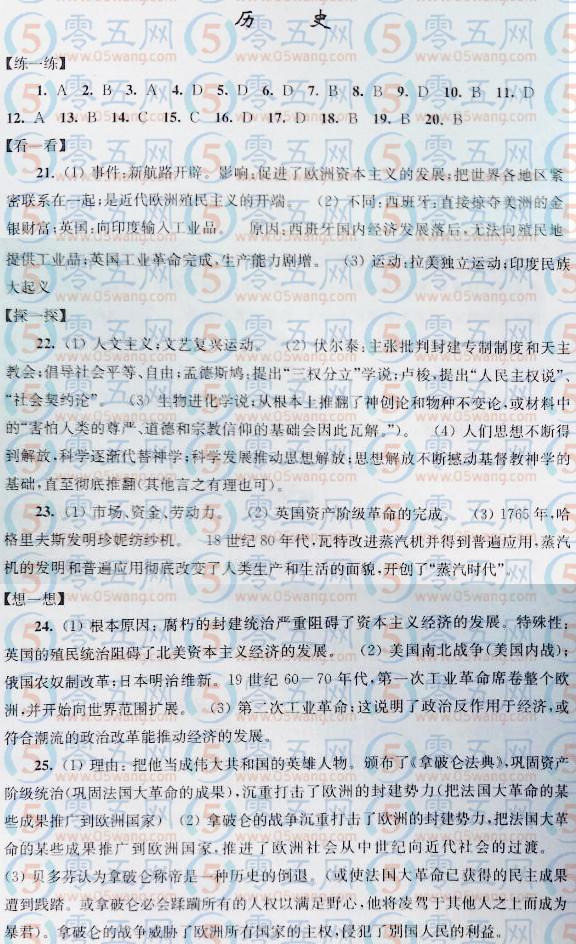 历 史
【练一练】
1. A 2. B 3. A 4. D 5. D 6. D 7. B 8. B 9. D 10. B 11. D
12. A 13. B 14. C 15. C 16. D 17. D 18. B 19. B 20. B
【看一看】
21. (1) 事件:新航路开辟。影响:促进了欧洲资本主义的发展;把世界各地区紧
密联系在一起;是近代欧洲殖民主义的开端。 (2) 不同:西班牙:直接掠夺美洲的金
银财富;英国:向印度输入工业品。 原因:西班牙国内经济发展落后,无法向殖民地
提供工业品;英国工业革命完成,生产能力剧增。 (3) 运动:拉美独立运动;印度民族
大起义
【探一探】
22. (1) 人文主义;文艺复兴运动。 (2) 伏尔泰:主张批判封建专制制度和天主
教会;倡导社会平等、自由;孟德斯鸠:提出“三权分立”学说;卢梭,提出“人民主权说”、
“社会契约论”。 (3) 生物进化学说;从根本上推翻了神创论和物种不变论,或材料中
的“害怕人类的尊严、道德和宗教信仰的基础会因此瓦解。”)。 (4) 人们思想不断得
到解放,科学逐渐代替神学;科学发展推动思想解放;思想解放不断撼动基督教神学的
基础,直至彻底推翻(其他言之有理也可)。
23. (1) 市场、资金、劳动力。 (2) 英国资产阶级革命的完成。 (3) 1765年,哈
格里夫斯发明珍妮纺纱机。 18世纪80年代,瓦特改进蒸汽机并得到普遍应用,蒸汽
机的发明和普遍应用彻底改变了人类生产和生活的面貌,开创了“蒸汽时代”。
【想一想】
24. (1) 根本原因:腐朽的封建统治严重阻碍了资本主义经济的发展。特殊性:
英国的殖民统治阻碍了北美资本主义经济的发展。 (2) 美国南北战争(美国内战);
俄国农奴制改革;日本明治维新。19世纪60-70年代,第一次工业革命席卷整个欧
洲,并开始向世界范围扩展。 (3) 第二次工业革命;这说明了政治反作用于经济,或
符合潮流的政治改革能推动经济的发展。
25. (1) 理由:把他当成伟大共和国的英雄人物。颁布了《拿破仑法典》,巩固资产
阶级统治(巩固法国大革命的成果),沉重打击了欧洲的封建势力(把法国大革命的某
些成果推广到欧洲国家) (2) 拿破仑的战争沉重打击了欧洲的封建势力,把法国大革
命的某些成果推广到欧洲国家,推进了欧洲社会从中世纪向近代社会的过渡。
(3) 贝多芬认为拿破仑称帝是一种历史的倒退。(或使法国大革命已获得的民主成果
遭到践踏。或拿破仑必会蹂躏所有的人权以满足野心,他将凌驾于其他人之上而成为
暴君)。拿破仑的战争威胁了欧洲所有国家的主权,侵犯了别国人民的利益。